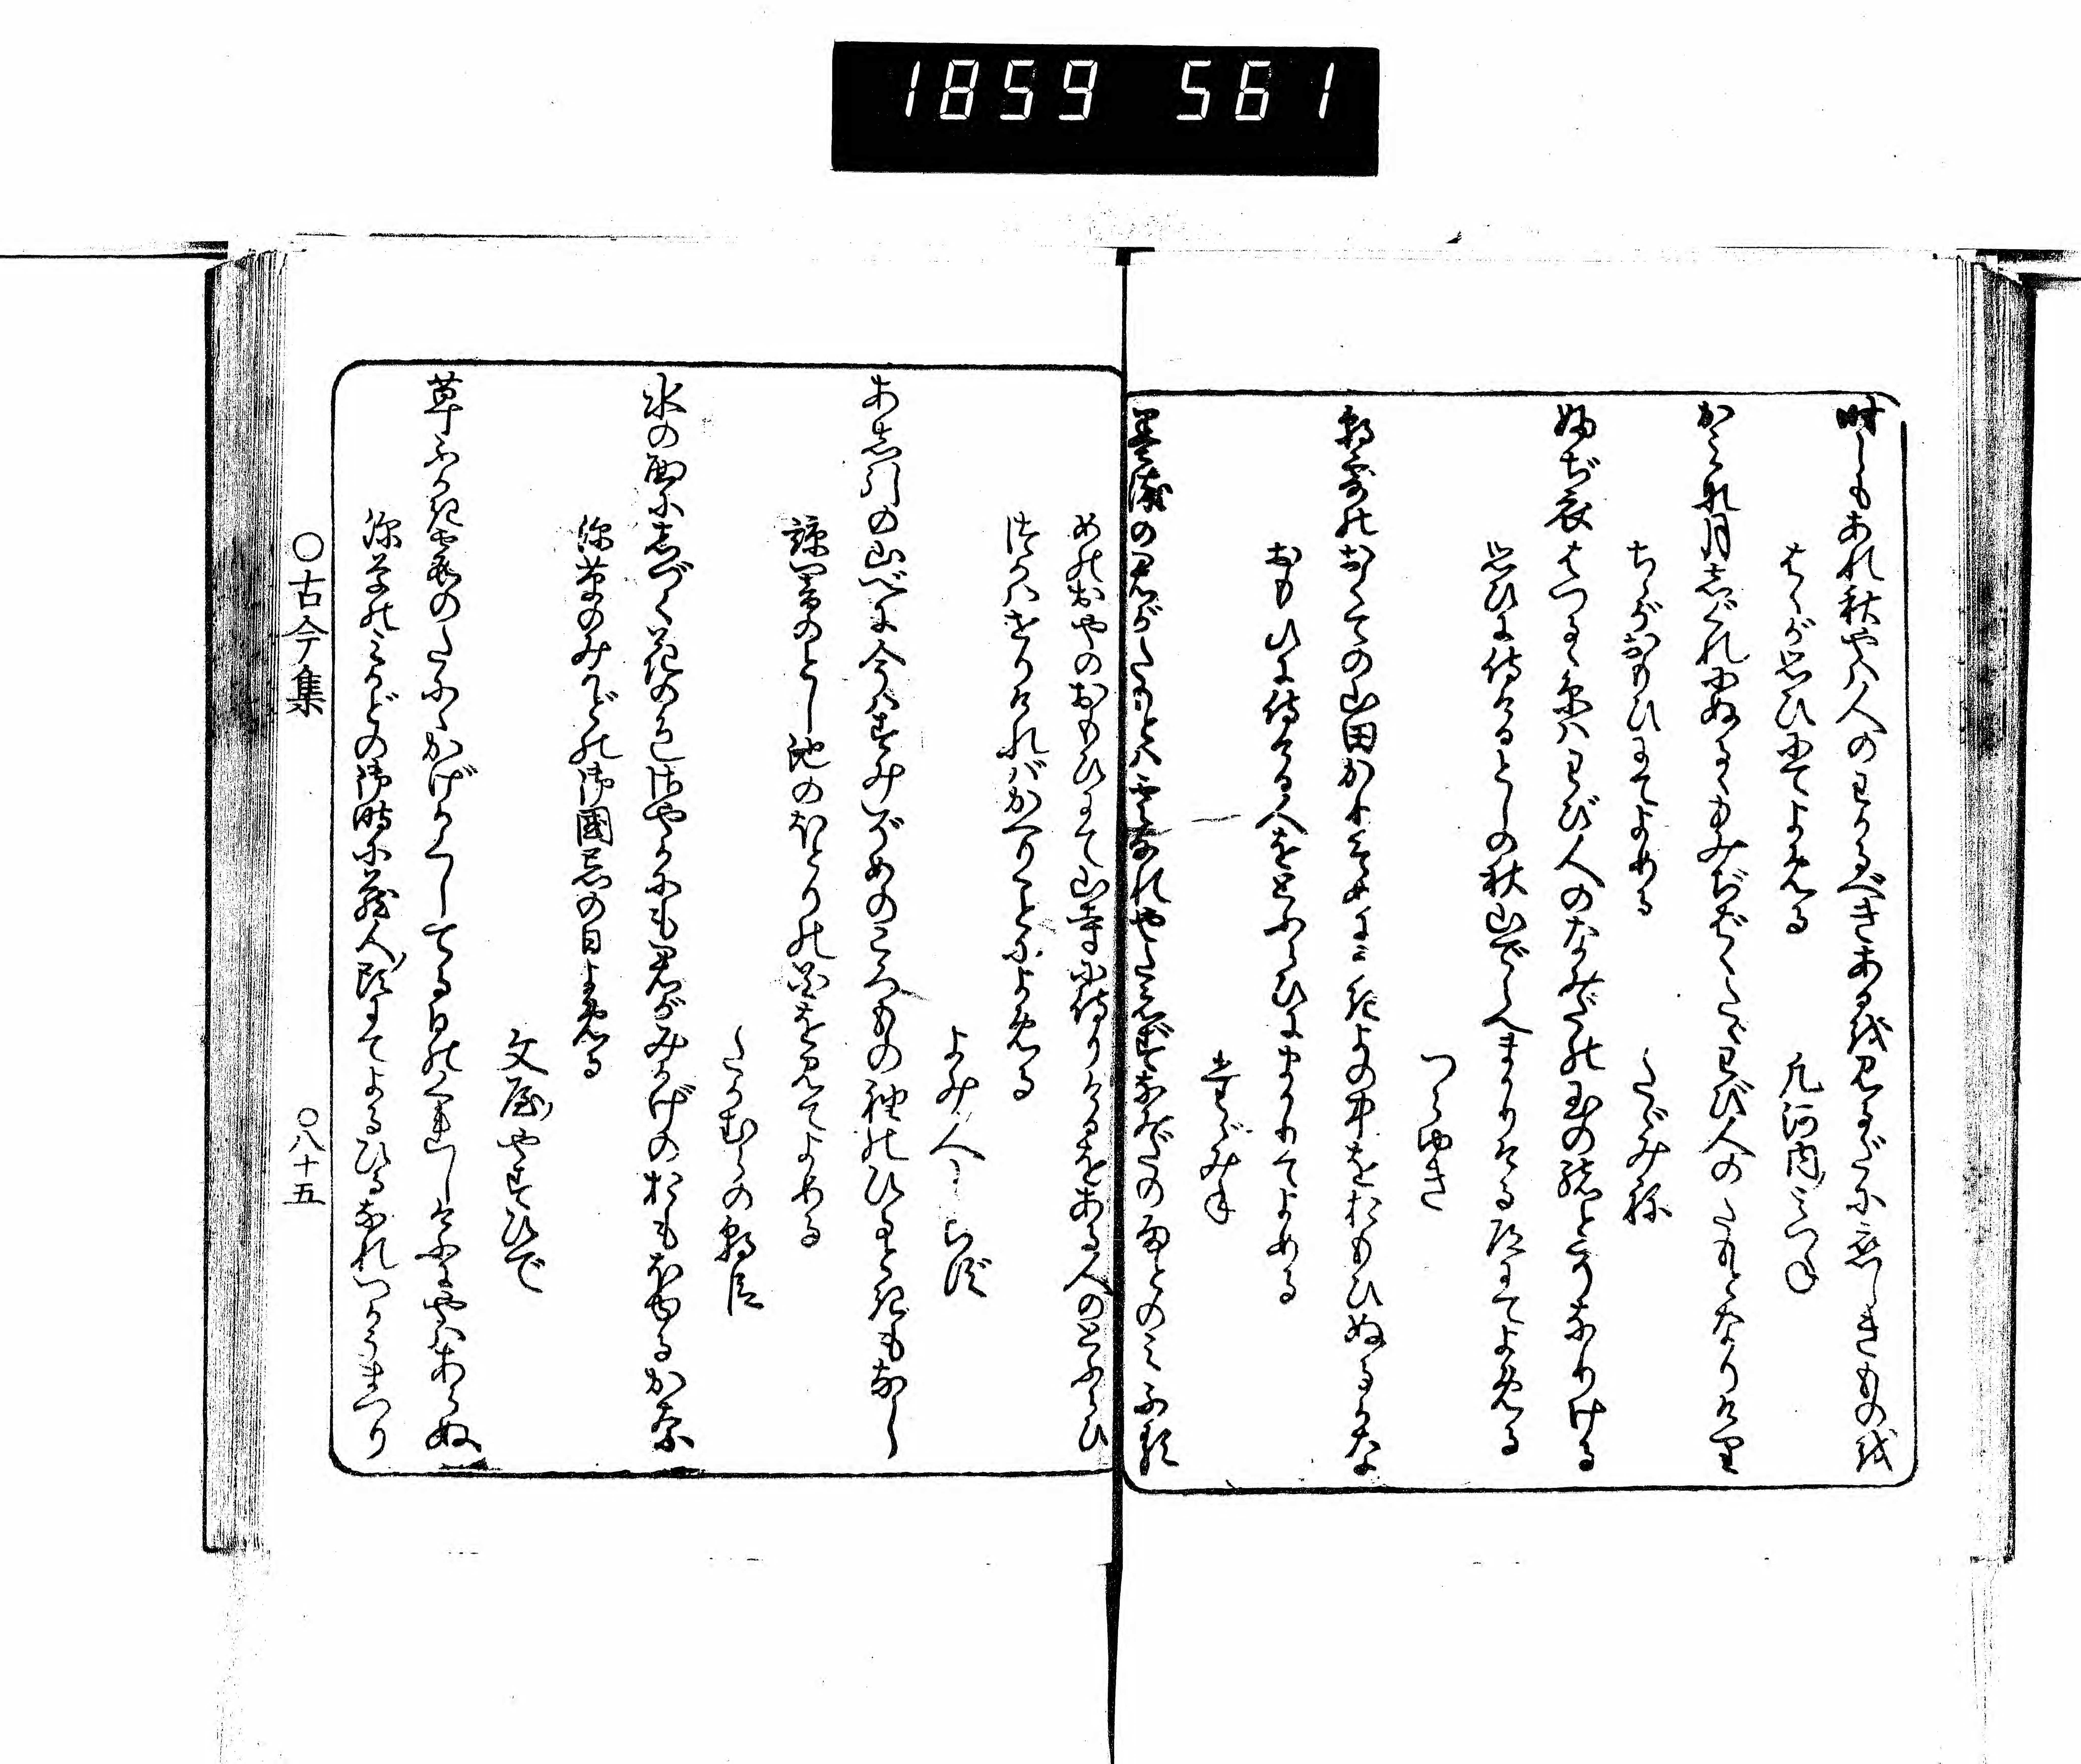 1859 561
時しもあれ秋やは人のわかるべきあるを見るだに恋しきものを
はゝが思ひにてよめる 凡河内みつね
かみな月しぐれにぬるゝもみぢばゝたゞわび人のたもとなりけり
ちゝがおもひにてよめる たゞみね
ふぢ衣はつるゝ糸はわび人のなみだの玉の緒とぞなりける
思ひに侍けるとしの秋山でらへまかりける道にてよめる
つらゆき
朝露のおくての山田かりそめにうき世の中をおもひぬるかな
おもひに侍ける人をとふらひにまかりてよめる
たゞみね
墨染の君がたもとは雲なれやたえずなみだの雨とのみふる
めのおやのおもひにて山寺に侍りけるをある人のとふらひ
つかはせりければかへりことによめる
よみ人しらず
あし引の山べに今はすみぞめのころもの袖のひるときもなし
諒闇のとし池のほとりの花を見てよめる
たかむらの朝臣
水の面にしづく花の色さやかにも君がみかげのおもほゆるかな
深草のみかどの御國忌の日よめる
文屋やすひで
草ふかき霞の谷にかげかくしてる日のくれしけふにやはあらぬ
深草のみかどの御時に蔵人頭にてよるひるなれつかうまつり
〇古今集 〇八十五